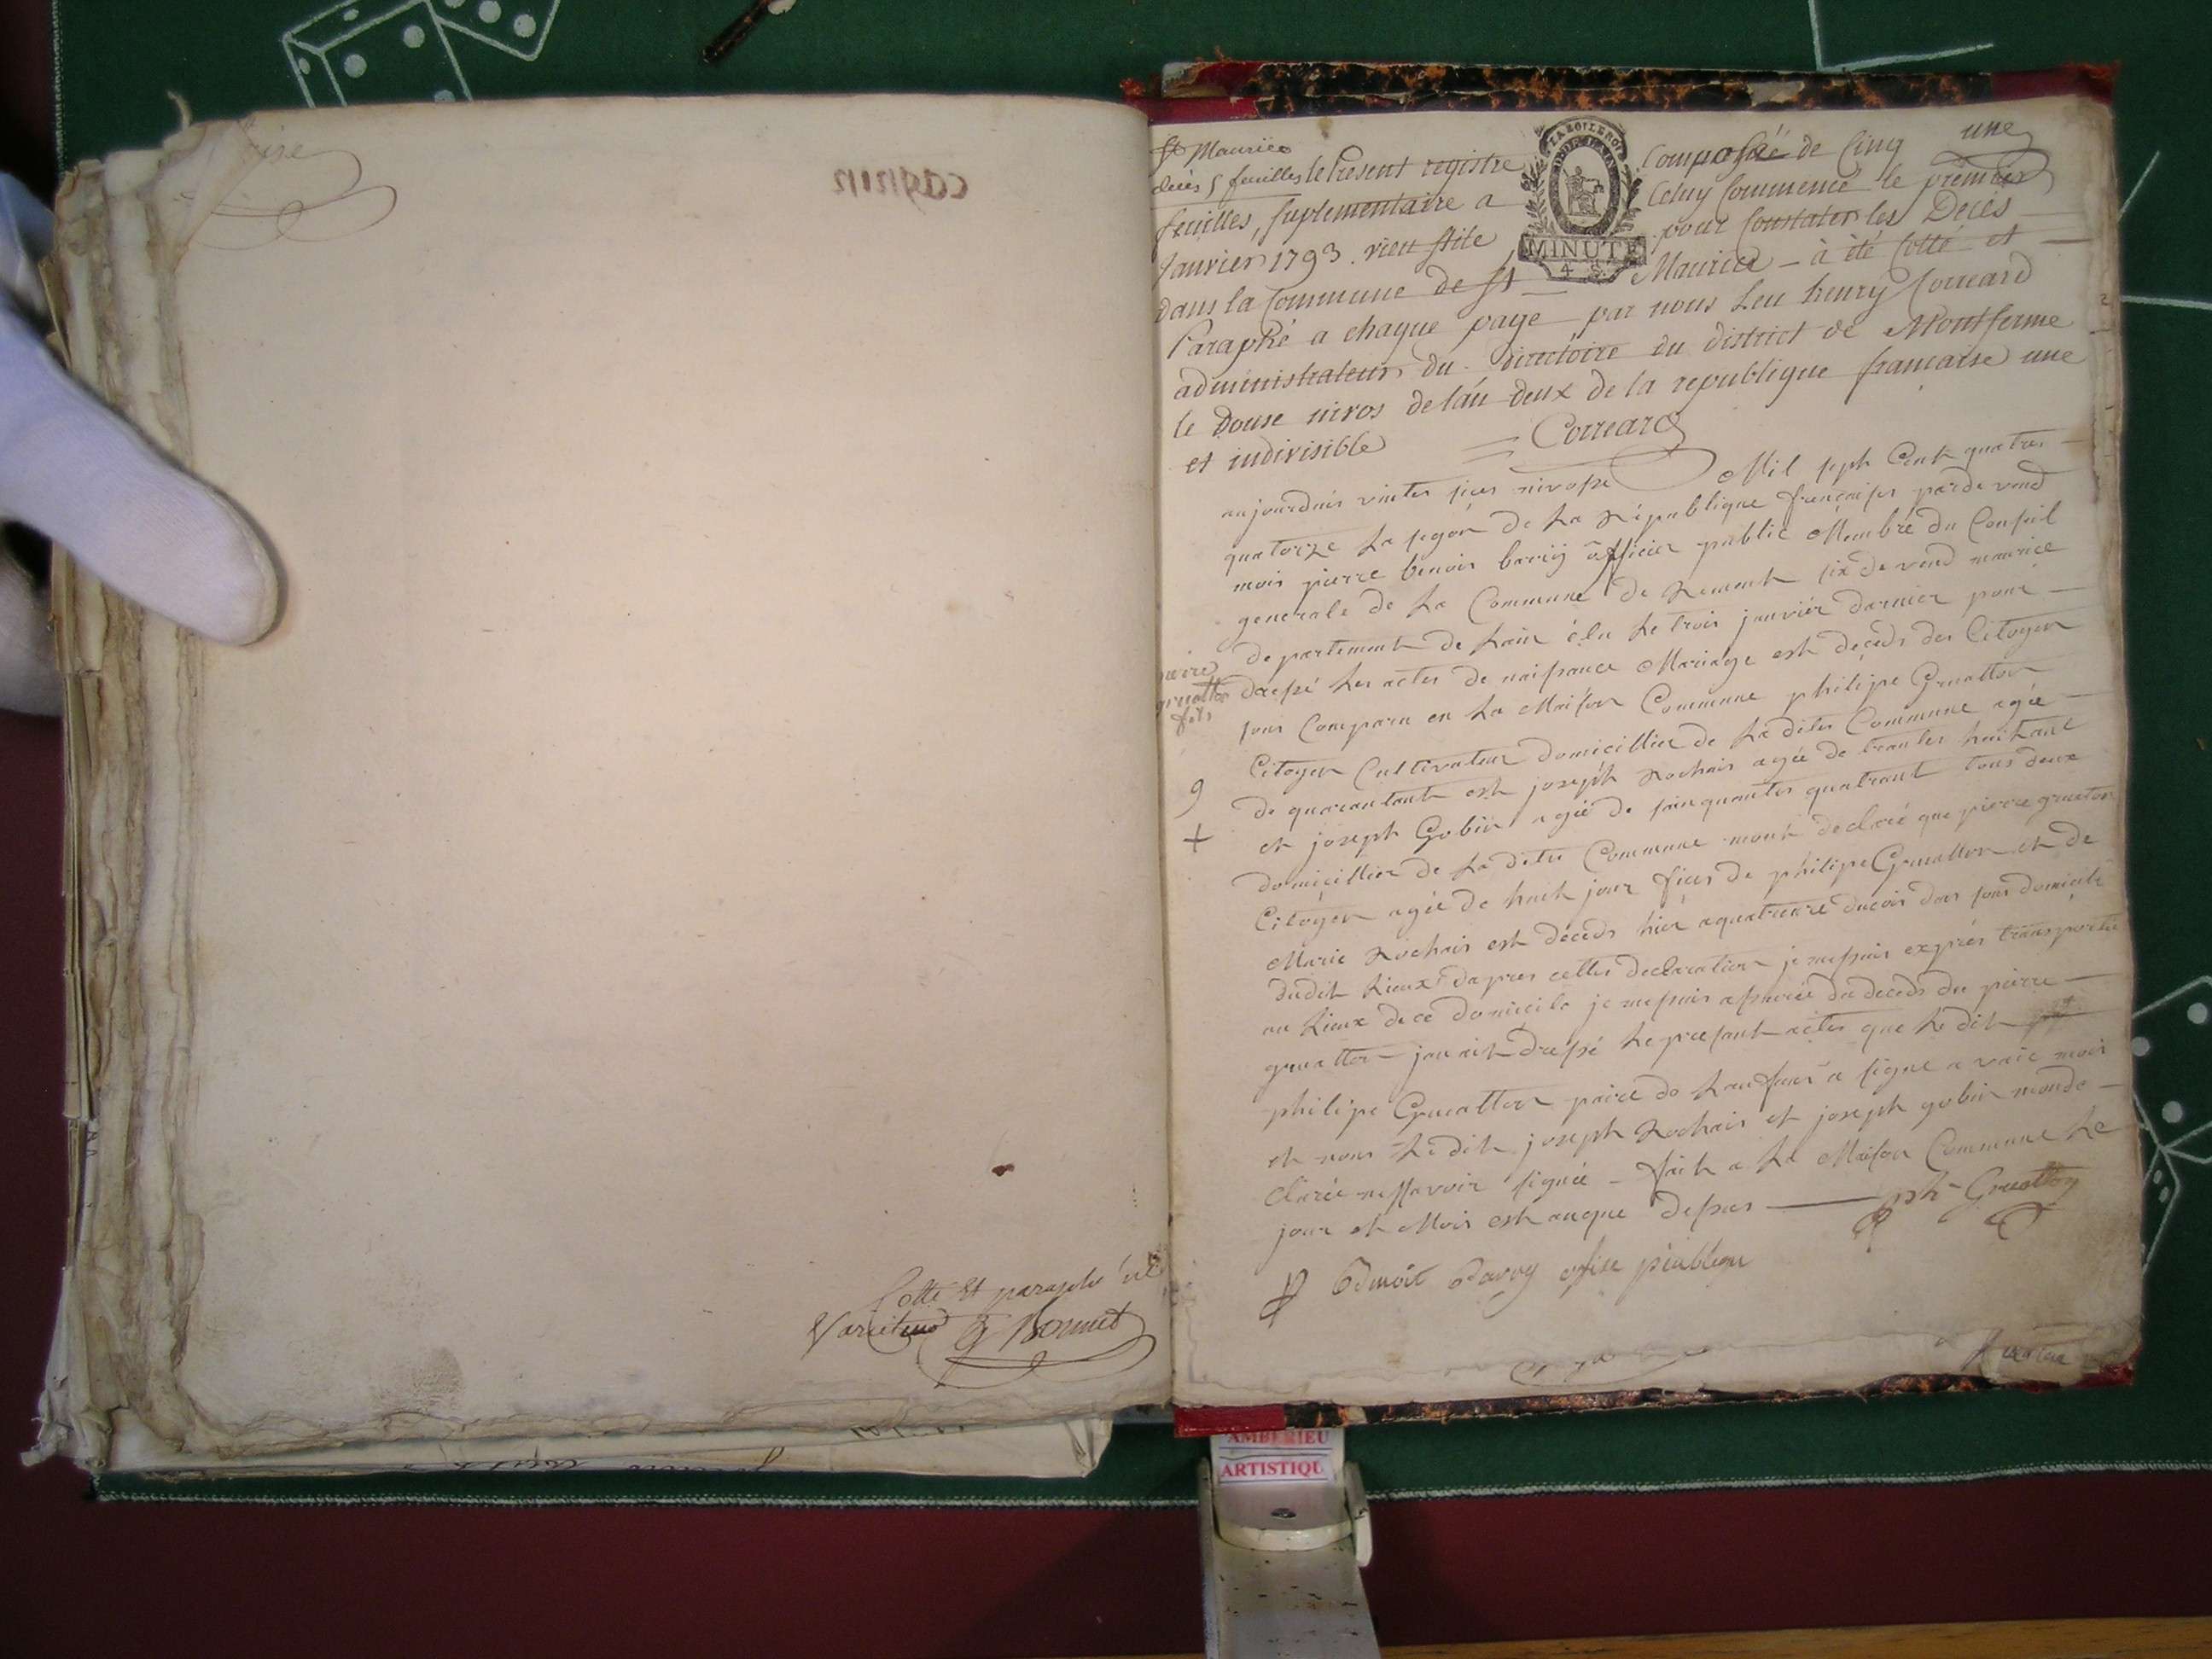 cagnin
Cotté et paraphé
Bonnet
une
St Maurice
décès 5 feuilles le Present registre Composée de Cinq
feuilles, suplementaire a Celuy Commencé le premier
Janvier 1793. vieu stile pour Constater les Deces
MINUTE
4 S
dans la Commune de St Maurice - à été Cotté et
Paraphé a chaque page par nous Leu henry Correard
administrateur du directoire du district de Montferme
le Douse nivos de l'an deux de la republique francaise une
et indivisible = Correard
aujourduis vintes sies nivose Mil seph Cent quatres
quatorze La segon de La République francaises parde vend
mois pierre benois barry officier public Membre du Conseil
generale de La Commune de Rement six de vend maurice
departement de Lain élu Le trois janviér darnier pour
dressé Les actes de naissance Mariage est deceds des Citoyen
sons Comparu en La Maison Commune philipe Gruatton
pierre
gruatton
fils
Citoyen Cultivateur domicillier de La dites Commune agée
de quarantant est joseph Rochais agée de trantes huit ant
et joseph Gobin agée de sainquantes quatrant tous deux
9
+
domicillier de La dites Commune mont declaré que pierre gruatton
Citoyen agée de huit jour fies de philipe Gruatton et de
Marie Rochais est décéds hier a quatreure ducoir dans sons domicile
dudit Lieux dapres cettes declaration je mesuis exprés transporté
au Lieux de ce domicile je mesuis assurée du deceds du pierre
gruatton jan ait dressé Le presant actes que Le dit
philipe Gruatton paire de Lanfans a signe a vaic mois
et nous Le dit joseph Rochais et joseph gobin monde
Clarée nessavoir signée - fait a La Maison Commune Le
jour et Mois est anque dessus ph Gruatton
Benoit Barry ofise piublique
AMBERIEU
ARTISTIQU